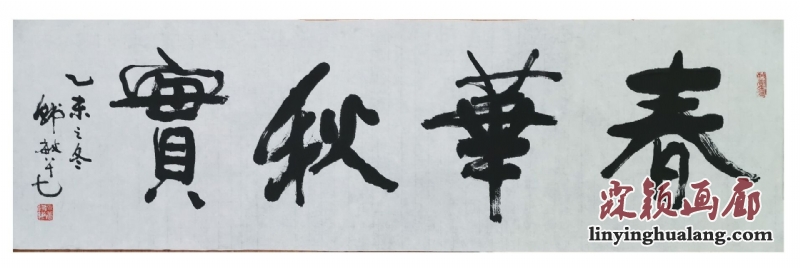 春華秋實
乙未之冬
霖颖画廊
linyinghualang.com